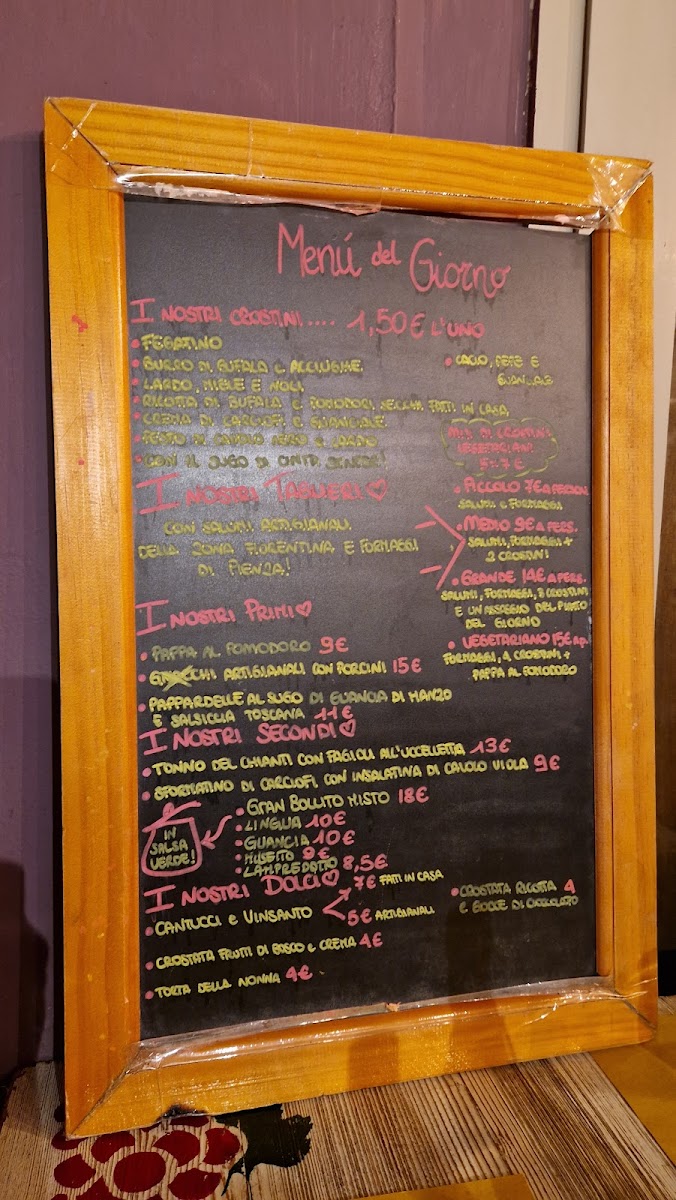 Menú del Giorno
I NOSTRI CROSTINI.... 1,50€ L'UNO
• FEGATINO
• BURRO DI BUFALA E ACCIUGHE
• LARDO, MIELE E NOCI
• RICOTTA DI BUFALA E POMODORI SECCHI FATTI IN CASA
• CREMA DI CARCIOFI E GUANCIALE
• PESTO DI CAVOLO NERO E LARDO
• CON IL SUGO DI CINTA SENESE!
• CACIO, PEPE E
GUANCIALE
MIX DI CROSTINI
VEGETARIANI
5: 7€
I NOSTRI TAGLIERI♡
CON SALUMI ARTIGIANALI
DELLA ZONA FIORENTINA E FORMAGGI
DI PIENZA!
• PICCOLO 7€ A PERSONA
SALUMI E FORMAGGI
• MEDIO 9€ A PERS.
SALUMI, FORMAGGI +
2 CROSTINI
• GRANDE 14€ A PERS.
SALUMI, FORMAGGI, 2 CROSTINI
E UN ASSAGGIO DEL PIATTO
DEL GIORNO
• VEGETARIANO 15€ A P.
FORMAGGI, 4 CROSTINI +
PAPPA AL POMODORO
I NOSTRI PRIMI♡
• PAPPA AL POMODORO 9€
• GNOCCHI ARTIGIANALI CON PORCINI 15€
• PAPPARDELLE AL SUGO DI GUANCIA DI MANZO
E SALSICCIA TOSCANA 11€
I NOSTRI SECONDI♡
• TONNO DEL CHIANTI CON FAGIOLI ALL'UCCELLETTA 13€
• SFORMATINO DI CARCIOFI, CON INSALATINA DI CAVOLO VIOLA 9€
IN
SALSA
VERDE!
• GRAN BOLLITO MISTO 18€
• LINGUA 10€
• GUANCIA 10€
• MUSETTO 9€
• LAMPREDOTTO 8,5€
I NOSTRI DOLCI♡
• CANTUCCI E VINSANTO
7€ FATTI IN CASA
5€ ARTIGIANALI
• CROSTATA FRUTTI DI BOSCO E CREMA 4€
• TORTA DELLA NONNA 4€
• CROSTATA RICOTTA 4
E GOCCE DI CIOCCOLATO